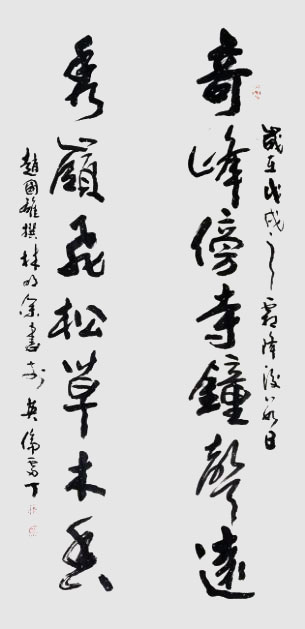 奇峰傍寺鐘聲遠
歲在戊戌之霜降後八日
秀嶺飛松草木香
趙國雄撰林明余書於英倫